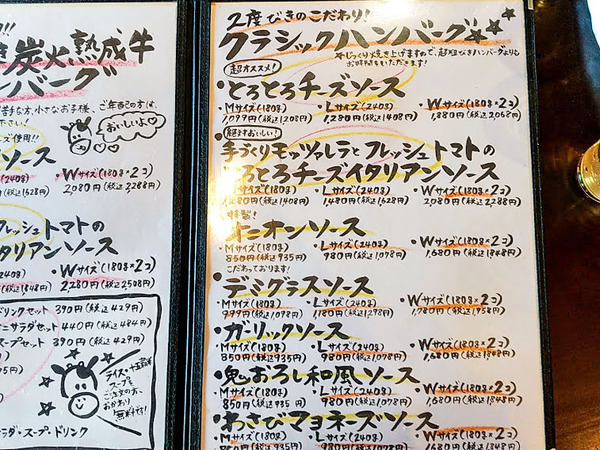 炭火熟成牛
ハンバーグ
苦手な方、小さなお子様、
ご年配の方は、
おいしいよ
チーズ使用!!
ソース
Wサイズ(180g×2コ)
2,080円(税込2,288円)
フレッシュトマトの
イタリアンソース
Wサイズ(180g×2コ)
2,280円(税込2,508円)
ドリンクセット 390円(税込429円)
ミニサラダセット 440円(税込484円)
スープセット 390円(税込429円)
ライス・十五穀米
スープも
ご注文の方、
おかわり
無料です!
サラダ・スープ・ドリンク
2度びきのこだわり!
クラシックハンバーグ
じっくり焼き上げますので、超粗びきハンバーグよりも
お時間をいただきます!
超オススメ!
とろとろチーズソース
・Mサイズ(180g) ・Lサイズ(240g) ・Wサイズ(180g×2コ)
1,099円(税込1,208円) 1,280円(税込1,408円) 1,880円(税込2,068円)
絶対おいしい!
手づくりモッツァレラとフレッシュトマトの
とろとろチーズイタリアンソース
Mサイズ(180g) ・Lサイズ(240g) ・Wサイズ(180g×2コ)
1,280円(税込1,408円) 1,480円(税込1,628円) 2,080円(税込2,288円)
特製!
オニオンソース
・Mサイズ(180g) ・Lサイズ(240g) ・Wサイズ(180g×2コ)
850円(税込935円) 980円(税込1,078円) 1,680円(税込1,848円)
こだわっております!
デミグラスソース
・Mサイズ(180g) ・Lサイズ(240g) ・Wサイズ(180g×2コ)
999円(税込1,098円) 1,180円(税込1,298円) 1,780円(税込1,958円)
ガーリックソース
・Mサイズ(180g) ・Lサイズ(240g) ・Wサイズ(180g×2コ)
850円(税込935円) 980円(税込1,078円) 1,680円(税込1,848円)
鬼おろし和風ソース
・Mサイズ(180g) ・Lサイズ(240g) ・Wサイズ(180g×2コ)
850円(税込935円) 980円(税込1,078円) 1,680円(税込1,848円)
わさびマヨネーズソース
・Mサイズ(180g) ・Lサイズ(240g) ・Wサイズ(180g×2コ)
850円(税込935円) 980円(税込1,078円) 1,680円(税込1,848円)